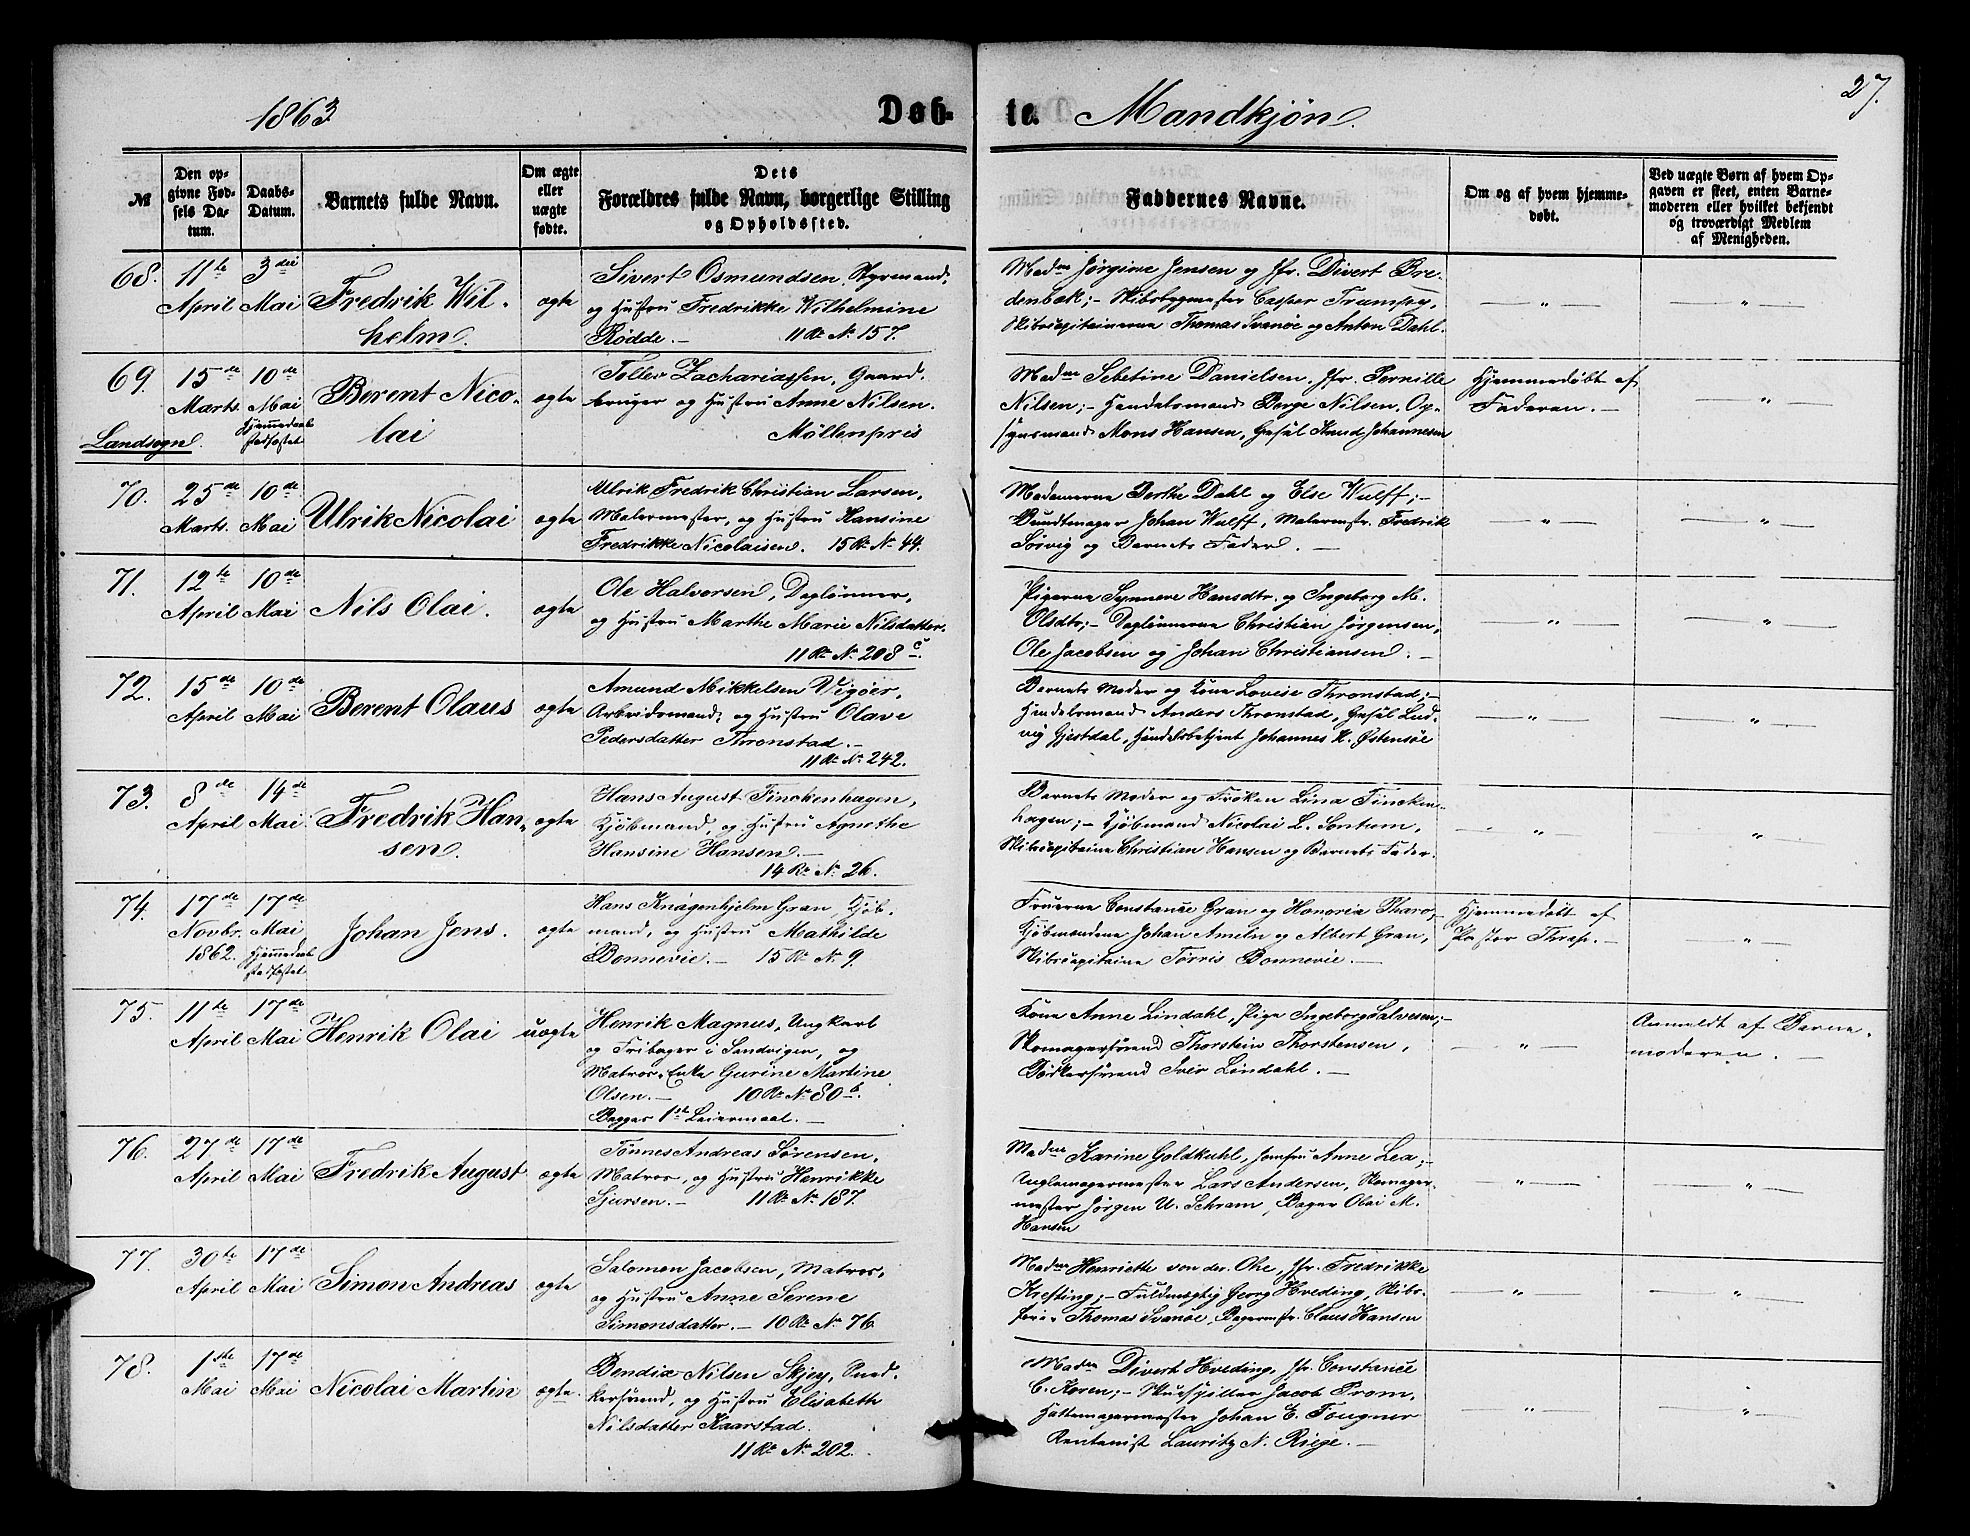 1863
Døb-
te.
Mandkjøn.
27.
№
Den opgivne Fødsels Datum.
Daabs-Datum.
Barnets fulde Navn.
Om ægte eller uægte fødte.
Dets Forældres fulde Navn, borgerlige Stilling og Opholdssted.
Faddernes Navne.
Om og af hvem hjemmedøbt.
Ved uægte Børn af hvem Opgaven er skeet, enten Barnemoderen eller hvilket bekjendt og troværdigt Medlem af Menigheden.
68. 11te April 3die Mai
Fredrik Wilhelm.
ægte
Sivert Osmundsen, Styrmand,
og Hustru Fredrikke Wilhelmine
Rødde. — 11 Rd. No 157.
Madm Jørgine Jensen og Jfr. Divert Bre-
denbæk; - Skibsbygmester Casper Trumpy,
Skibscapitainerne Thomas Svanøe og Anton Dahl.
— " — — " —
69. 15de Marts. 10de Mai Hjemmedaab stadfæstet
Landsogn.
Berent Nicolai
ægte
Tollev Zachariassen, Gaard-
bruger og Hustru Anne Nilsen.
Møllenpris
Madme Sebetine Danielsen, Jfr. Pernille
Nilsen; - Handelsmand Børge Nilsen, Op-
synsmand Mons Hansen, Gesel Knud Johannesen
Hjemmedøbt af
Faderen. —
— " —
70. 25de Marts. 10de Mai
Ulrik Nicolai
ægte
Ulrik Fredrik Christian Larsen,
Malermester, og Hustru Hansine
Fredrikke Nicolaisen. 15 Rd. No 44.
Madamerne Berthe Dahl og Else Wulff; -
Bundtmager Johan Wulff, Malermstr. Fredrik
Sørvig og Barnets Fader. —
— " — — " —
71. 12te April 10de Mai
Nils Olai.
ægte
Ole Halvorsen, Daglønner,
og Hustru Marthe Marie Nilsdatter.
11 Rd. No 208 c.
Pigerne Synneve Hansdtr. og Ingeborg M.
Olsdtr; - Daglønnerne Christian Jørgensen,
Ole Jacobsen og Johan Christiansen. —
— " — — " —
72. 15de April 10de Mai
Berent Olaus
ægte
Amund Mikkelsen Vigøer,
Arbeidsmand, og Hustru Olave
Pedersdatter Thronstad. —
11 Rd. No 242.
Barnets Moder og Kone Lovise Thronstad; -
Handelsmand Anders Thronstad, Gesel Lud-
vig Gjestdal, Handelsbetjent Johannes K. Østensøe
— " — — " —
73. 8de April 14de Mai
Fredrik Hansen.
ægte
Hans August Finckenhagen,
Kjøbmand, og Hustru Agnethe
Hansine Hansen. —
14 Rd. No 26.
Barnets Moder og Frøken Lina Fincken-
hagen; - Kjøbmand Nicolai L. Sontum,
Skibscapitaine Christian Hansen og Barnets Fader.
— " — — " —
74. 17de Novbr. 1862. 17de Mai Hjemmedaab stadfæstet
Johan Jens.
ægte
Hans Knagenhjelm Gran, Kjøb-
mand, og Hustru Mathilde
Bonnevie. — 15 Rd. No 9.
Fruerne Constance Gran og Honoria Thaw; -
Kjøbmændene Johan Ameln og Albert Gran,
Skibscapitaine Tørris Bonnevie. —
Hjemmedøbt af
Pastor Thrap. —
— " —
75. 11te April 17de Mai
Henrik Olai
uægte
Henrik Magnus, Ungkarl
og Fribager i Sandvigen, og
Matros-Enke Gurine Martine
Olsen. — 10 Rd. No 80 b.
Begges 1ste Leiermaal.
Kone Anne Lindahl, Pige Ingeborg Salvesen; -
Skomagersvend Thorstein Thorstensen,
Bødkersvend Iver Lindahl. —
— " —
Anmeldt af Barne-
moderen. —
76. 27de April 17de Mai
Fredrik August
ægte
Tønnes Andreas Sørensen,
Matros, og Hustru Henrikke
Sjursen. — 11 Rd. No 187.
Madme Karine Goldkuhl, Jomfru Anne Lea; -
Uglemagermester Lars Andersen, Skomager-
mester Jørgen U. Schram, Bager Olai M.
Hansen
— " — — " —
77. 30te April 17de Mai
Simon Andreas
ægte
Salomon Jacobsen, Matros,
og Hustru Anne Serene
Simonsdatter. — 10 Rd. No 76
Madm Henriette von der Ohe, Jfr. Fredrikke
Krefting; - Fuldmægtig Georg Hveding, Skibs-
fører Thomas Svanøe, Bagermstr. Claus Hansen
— " — — " —
78. 1ste Mai 17de Mai
Nicolai Martin
ægte.
Bendix Nilsen Skjey, Sned-
kersvend, og Hustru Elisabeth
Nilsdatter Kaarstad.
11 Rd. No 202.
Madm Divert Hveding, Jfr. Constance
C. Koren; - Skuespiller Jacob Prom,
Hattemagermester Johan E. Fougner
Rentenist Lauritz N. Riege. —
— " — — " —